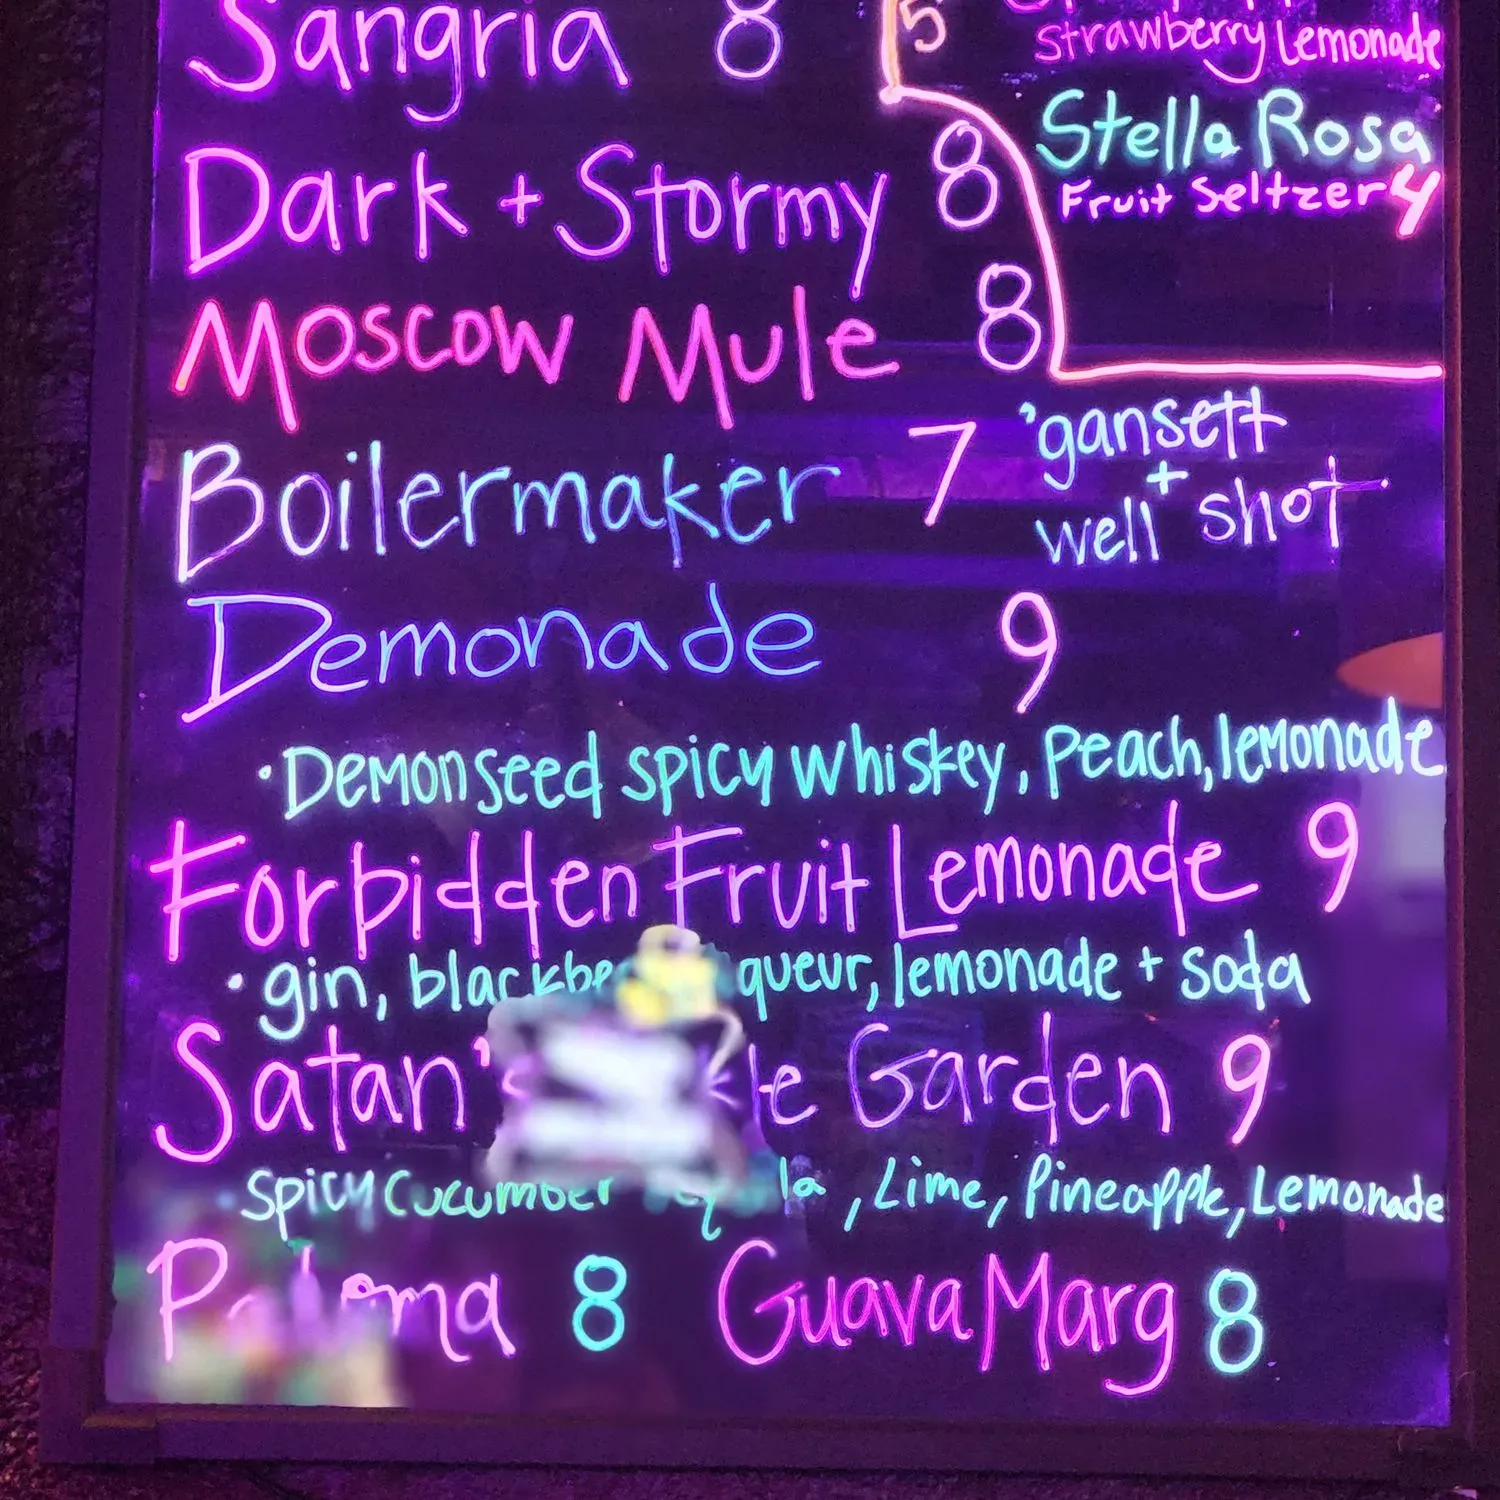 Sangria 8
5
Strawberry Lemonade
Stella Rosa
Fruit Seltzer 4
Dark + Stormy 8
Moscow Mule 8
Boilermaker 7 'gansett
+
well shot
Demonade 9
• Demonseed spicy whiskey, peach, lemonade
Forbidden Fruit Lemonade 9
• gin, lemonade + soda
Satan's Garden 9
Spicy Cucumber , Lime, Pineapple, Lemonade
Paloma 8 Guava Marg 8